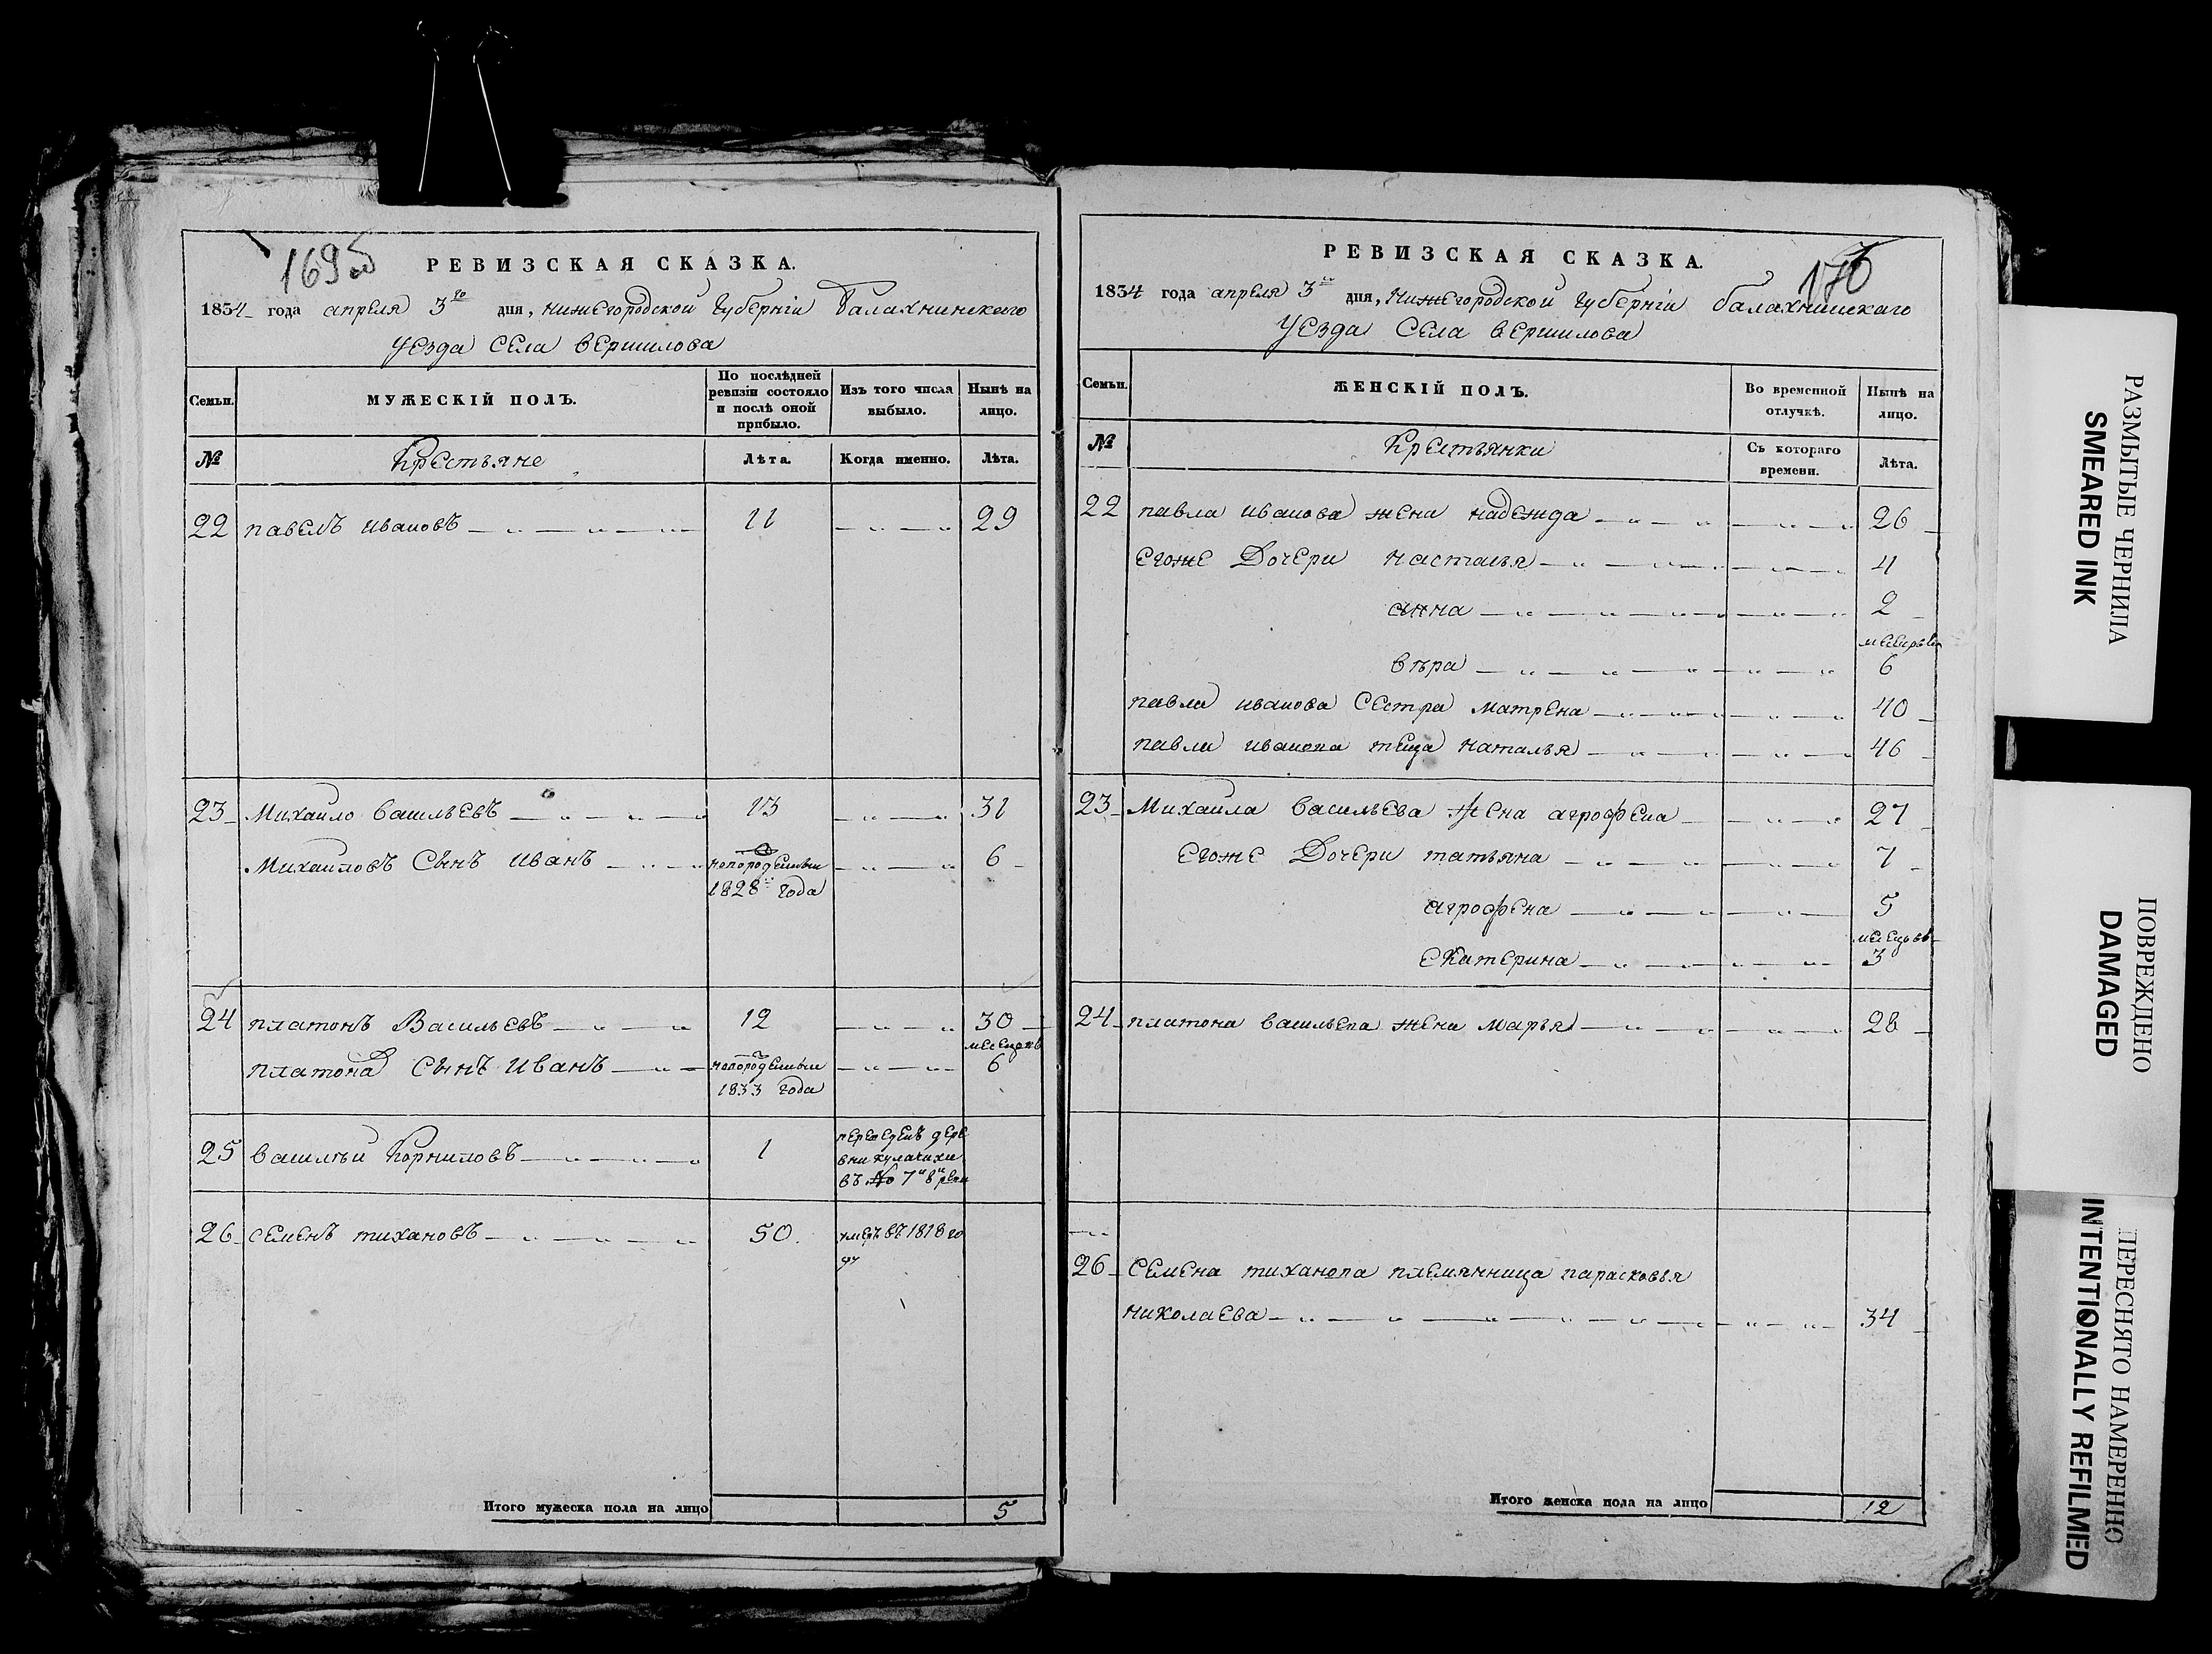 169об
РЕВИЗСКАЯ СКАЗКА.
1834 года апреля 3го дня, нижегородской губернiи Балахнинскаго
уезда села вершилова
Семьи.
МУЖЕСКІЙ ПОЛЪ.
По послѣдней ревизіи состояло и послѣ оной прибыло.
Изъ того числа выбыло.
Нынѣ на лицо.
№
Крестьяне
Лѣта.
Когда именно.
Лѣта.
22 павелъ ивановъ 11 29
23 Михайло васильевъ 13 31
Михайловъ сынъ иванъ новорожденный 6
1828 года
24 платонъ Васильевъ 12 30
месецовъ
платона сынъ иванъ новорожденный 6
1833 года
25 василѣй Корниловъ 1 переведенъ дере
вни кулачихи
въ №о 7
26 семенъ тихановъ 50. умеръ въ 1818 го
ду
Итого мужеска пола на лицо 5
170
РЕВИЗСКАЯ СКАЗКА.
1834 года апреля 3го дня, Нижегородской губернiи балахнинскаго
уезда села вершилова
Семьи.
ЖЕНСКІЙ ПОЛЪ.
Во временной отлучкѣ.
Нынѣ на лицо.
№
Крестьянки
Съ котораго времени.
Лѣта.
22 павла иванова жена надежда 26
егоже Дочери настасья 4
анна 2
месецовъ
вѣра 6
павла иванова сестра матрена 40
павла иванова теща наталья 46
23 Михаила васильева жена агрофена 27
егоже Дочери татьяна 7
агрофена 5
месецовъ
екатерина 3
24 платона васильева жена марья 28
26 семена тиханова племянница парасковья
николаева 34
Итого женска пола на лицо 12
РАЗМЫТЫЕ ЧЕРНИЛА
SMEARED INK
ПОВРЕЖДЕНО
DAMAGED
ПЕРЕСНЯТО НАМЕРЕННО
INTENTIONALLY REFILMED